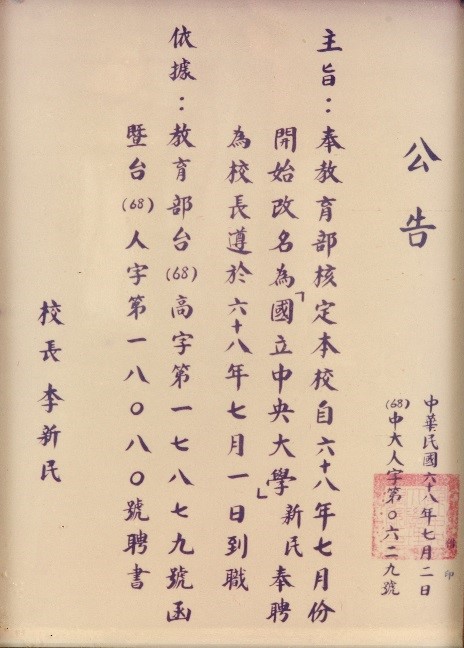 公告
中華民國六十八年七月二日
(68)中大人字第〇六二九號
主旨：奉教育部核定本校自六十八年七月份
開始改名為「國立中央大學」新民奉聘
為校長遵於六十八年七月一日到職
依據：教育部台(68)高字第一七八七九號函
暨台(68)人字第一八〇八〇號聘書
校長 李新民